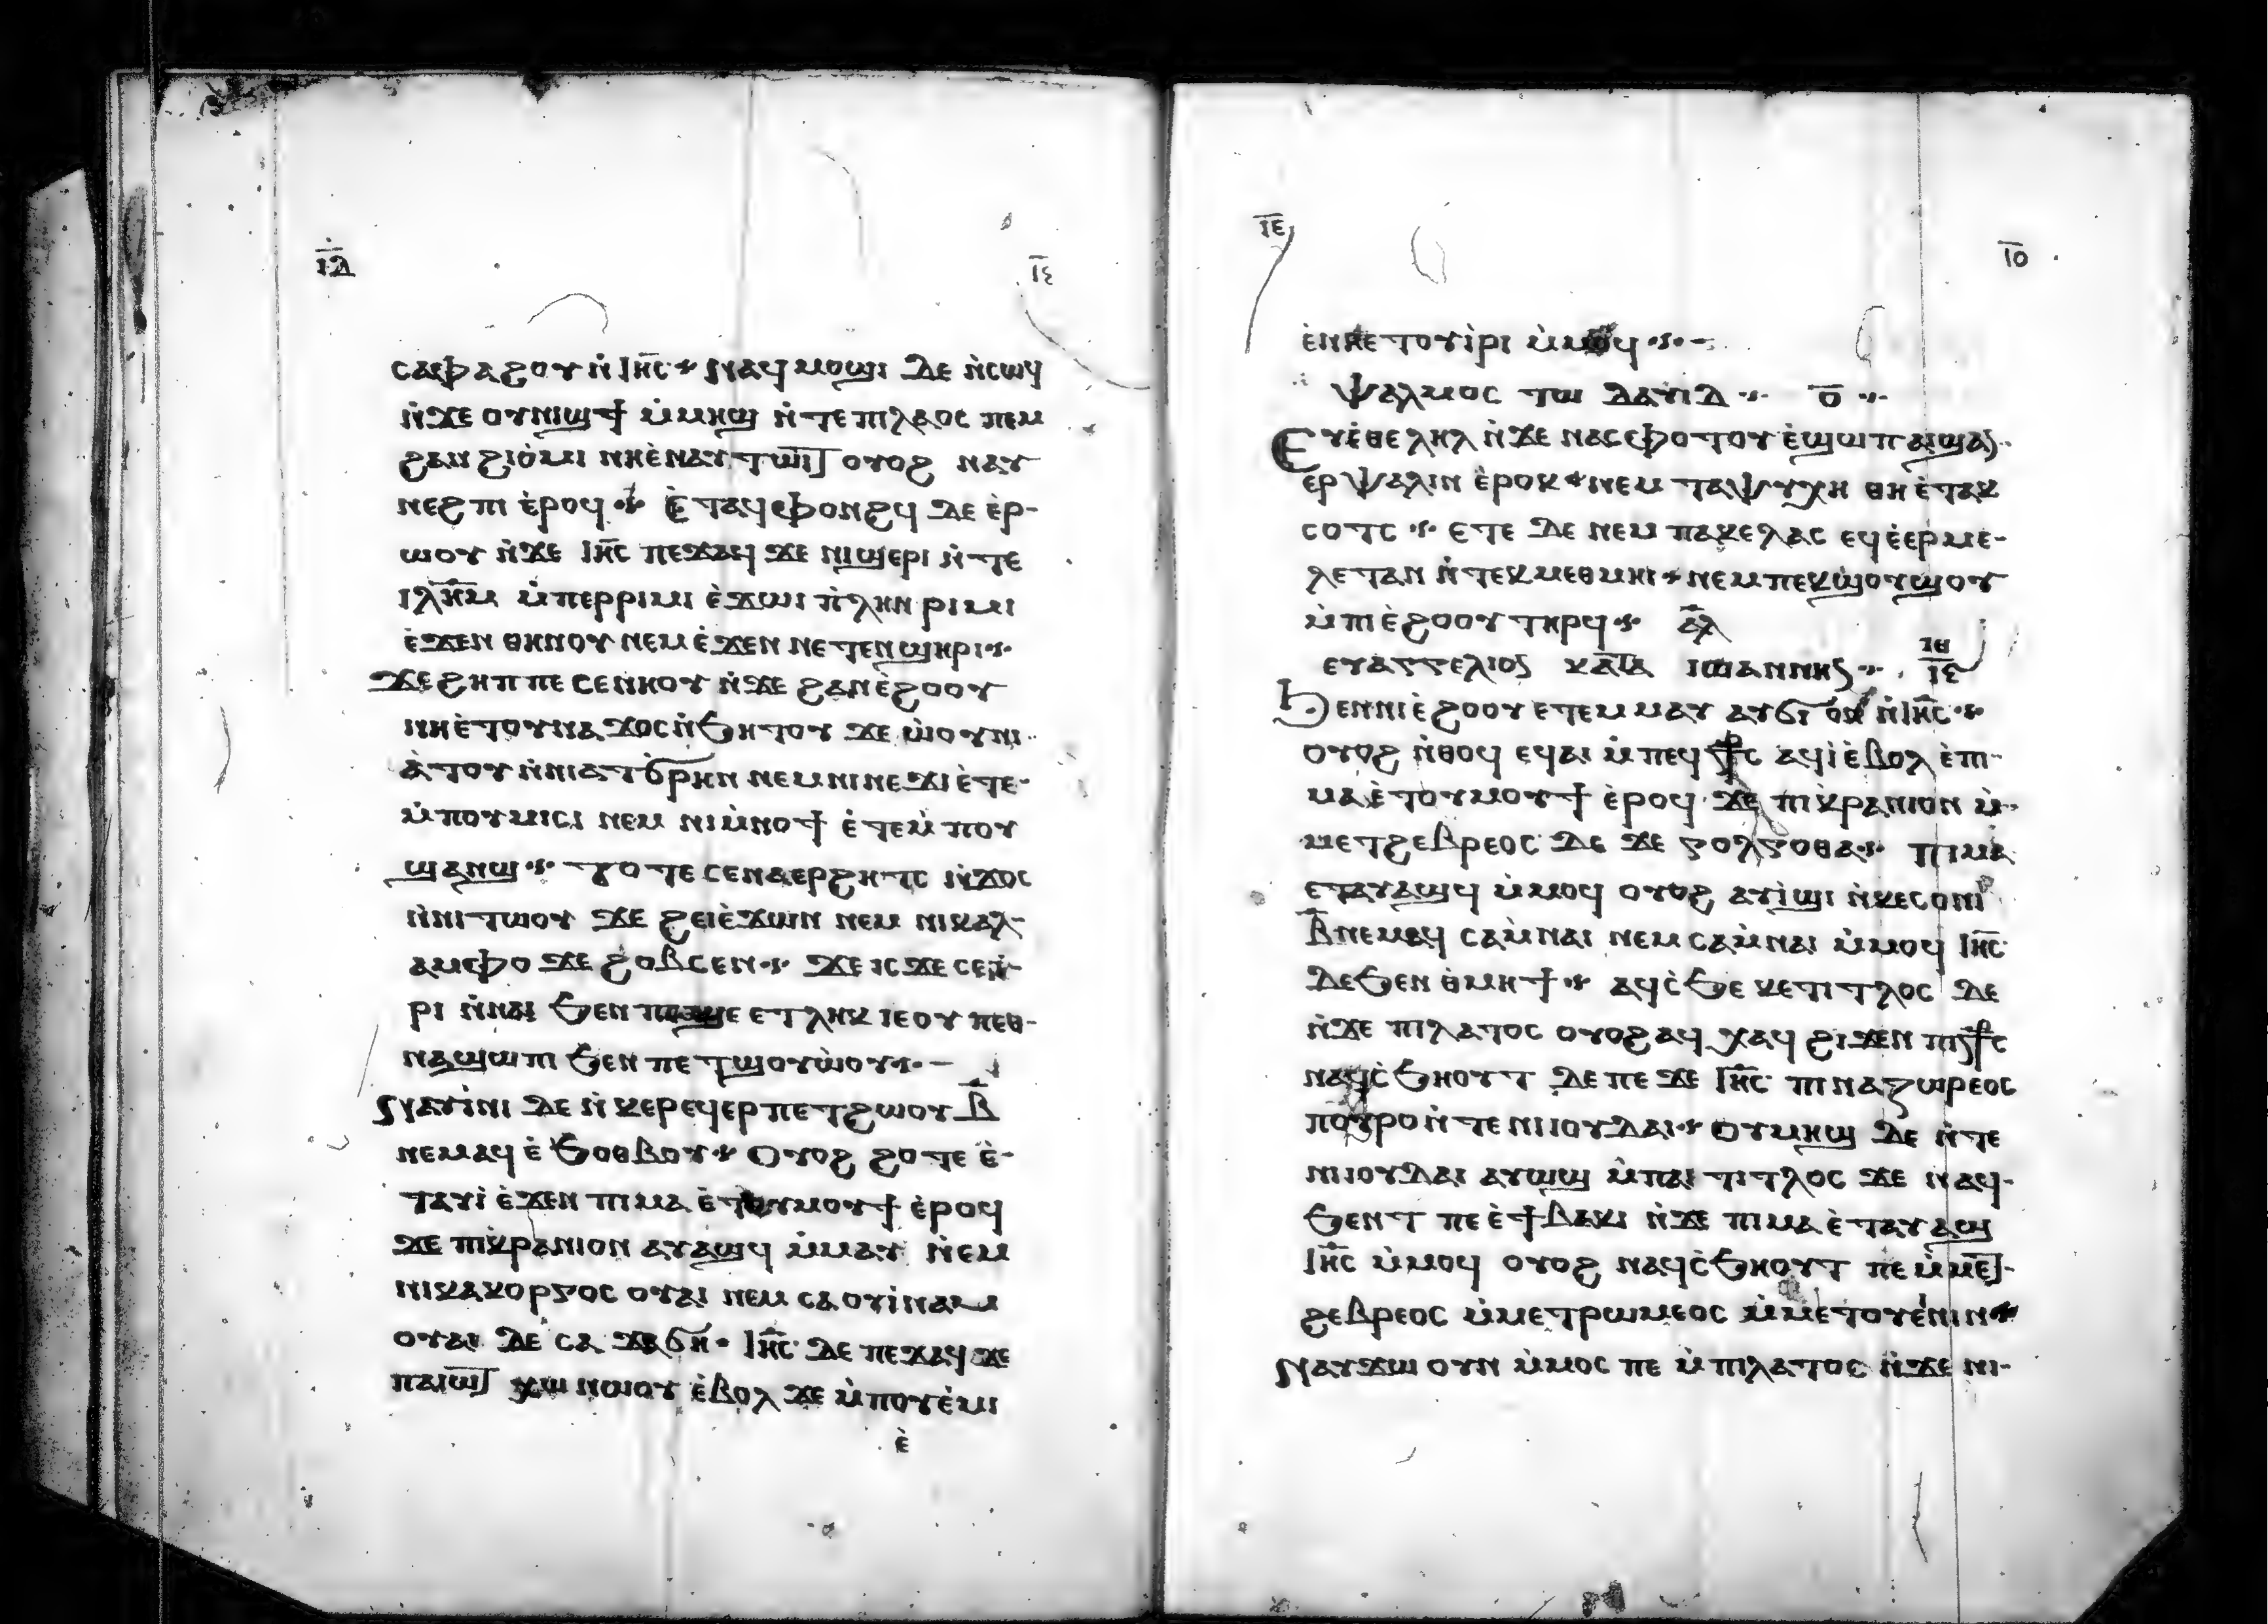 ⲓ̅ⲇ̅ ⲓ̅ⲉ̅
ⲥⲁⲫⲁϩⲟⲩ ⲛ̀ⲓⲏ̅ⲥ̅ ⲛⲁϥⲙⲟϣⲓ ⲇⲉ ⲛ̀ⲥⲱϥ
ⲛ̀ϫⲉ ⲟⲩⲛⲓϣϯ ⲙ̀ⲙⲏϣ ⲛ̀ⲧⲉ ⲡⲓⲗⲁⲟⲥ ⲛⲉⲙ
ϩⲁⲛϩⲓⲟ̀ⲙⲓ ⲛⲏⲉ̀ⲛⲁⲩⲧⲱⲓⲧ ⲟⲩⲟϩ ⲛⲁⲩ
ⲛⲉϩⲡⲓ ⲉ̀ⲣⲟϥ ⲉ̀ⲧⲁϥⲫⲟⲛϩϥ ⲇⲉ ⲉ̀ⲣ-
ⲱⲟⲩ ⲛ̀ϫⲉ ⲓⲏ̅ⲥ̅ ⲡⲉϫⲁϥ ϫⲉ ⲛⲓϣⲉⲣⲓ ⲛ̀ⲧⲉ
ⲓⲗ̅ⲏ̅ⲙ̅ ⲙ̀ⲡⲉⲣⲣⲓⲙⲓ ⲉ̀ϫⲱⲓ ⲡ̀ⲗⲏⲛ ⲣⲓⲙⲓ
ⲉ̀ϫⲉⲛ ⲑⲏⲛⲟⲩ ⲛⲉⲙ ⲉ̀ϫⲉⲛ ⲛⲉⲧⲉⲛϣⲏⲣⲓ
ϫⲉ ϩⲏⲡⲡⲉ ⲥⲉⲛⲏⲟⲩ ⲛ̀ϫⲉ ϩⲁⲛⲉ̀ϩⲟⲟⲩ
ⲛⲏⲉ̀ⲧⲟⲩⲛⲁϫⲟⲥ ⲛ̀ϧⲏⲧⲟⲩ ϫⲉ ⲱ̀ⲟⲩⲛⲓ
ⲁ̀ⲧⲟⲩ ⲛ̀ⲛⲓⲁⲧϭⲣⲏⲛ ⲛⲉⲙ ⲛⲓⲛⲉϫⲓ ⲉ̀ⲧⲉ
ⲙ̀ⲡⲟⲩⲙⲓⲥⲓ ⲛⲉⲙ ⲛⲓⲙ̀ⲛⲟϯ ⲉ̀ⲧⲉⲙ̀ⲡⲟⲩ
ϣⲁⲛϣ ⲧⲟⲧⲉ ⲥⲉⲛⲁⲉⲣϩⲏⲧⲥ ⲛ̀ϫⲟⲥ
ⲛ̀ⲛⲓⲧⲱⲟⲩ ϫⲉ ϩⲉⲓ ⲉ̀ϫⲱⲛ ⲛⲉⲙ ⲛⲓⲕⲁⲗ-
ⲁⲙⲫⲟ ϫⲉ ϩⲟⲃⲥⲉⲛ ϫⲉ ⲓⲥϫⲉ ⲥⲉⲓ̀-
ⲣⲓ ⲛ̀ⲛⲁⲓ ϧⲉⲛ ⲡⲓϣⲉ ⲉⲧⲗⲏⲕ ⲓⲉ ⲟⲩ ⲡⲉⲑ-
ⲛⲁϣⲱⲡⲓ ϧⲉⲛ ⲡⲉⲧϣⲟⲩⲱ̀ⲟⲩ
ⲛⲁⲩⲓ̀ⲛⲓ ⲇⲉ ⲛ̀ⲕⲉⲣⲉϥⲉⲣⲡⲉⲧϩⲱⲟⲩ ⲃ̅
ⲛⲉⲙⲁϥ ⲉ̀ϧⲟⲑⲃⲟⲩ ⲟⲩⲟϩ ϩⲟⲧⲉ ⲉ̀-
ⲧⲁⲩⲓ̀ ⲉ̀ϫⲉⲛ ⲡⲓⲙⲁ ⲉ̀ⲧⲟⲩⲙⲟⲩϯ ⲉ̀ⲣⲟϥ
ϫⲉ ⲡⲓⲕⲣⲁⲛⲓⲟⲛ ⲁⲩⲁϣϥ ⲙ̀ⲙⲁⲩ ⲛ̀ⲉⲙ
ⲛⲓⲕⲁⲕⲟⲣⲅⲟⲥ ⲟⲩⲁⲓ ⲛⲉⲙ ⲥⲁⲟⲩⲓ̀ⲛⲁⲙ
ⲟⲩⲁⲓ ⲇⲉ ⲥⲁ ϫⲁϭⲏ ⲓⲏ̅ⲥ̅ ⲇⲉ ⲡⲉϫⲁϥ ϫⲉ
ⲡⲁⲓⲱ̅ⲧ ⲭⲱ ⲛⲱⲟⲩ ⲉ̀ⲃⲟⲗ ϫⲉ ⲙ̀ⲡⲟⲩⲉ̀ⲙⲓ
ⲉ̀
ⲓ̅ⲉ̅ ⲓ̅ⲟ̅
ⲉ̀ⲛⲏⲉⲧⲟⲩⲓ̀ⲣⲓ ⲙ̀ⲙⲟϥ
ⲯⲁⲗⲙⲟⲥ ⲧⲱ ⲇⲁⲩⲓⲇ ⲟ̅
ⲉⲩⲉ̀ⲑⲉⲗⲏⲗ ⲛ̀ϫⲉ ⲛⲁⲥⲫⲟⲧⲟⲩ ⲉ̀ϣⲱⲡ ⲁⲓϣⲁⲛ
ⲉⲣⲯⲁⲗⲓⲛ ⲉ̀ⲣⲟⲕ ⲛⲉⲙ ⲧⲁⲯⲩⲭⲏ ⲑⲏ ⲉ̀ⲧⲁⲕ
ⲥⲟⲧⲥ ⲉⲧⲉ ⲇⲉ ⲛⲉⲙ ⲡⲁⲕⲉⲗⲁⲥ ⲉϥⲉ̀ⲉⲣⲙⲉ-
ⲗⲉⲧⲁⲛ ⲛ̀ⲧⲉⲕⲙⲉⲑⲙⲏⲓ ⲛⲉⲙ ⲡⲉⲕϣⲟⲩϣⲟⲩ
ⲙ̀ⲡⲓⲉ̀ϩⲟⲟⲩ ⲧⲏⲣϥ ⲁ̅ⲗ̅
ⲉⲩⲁⲅⲅⲉⲗⲓⲟⲛ ⲕⲁⲧⲁ ⲓⲱⲁⲛⲛⲏⲛ ⲓ̅ⲑ̅ ⲓ̅ⲉ̅
ϧⲉⲛ ⲛⲓⲉ̀ϩⲟⲟⲩ ⲉⲧⲉⲙⲙⲁⲩ ⲁⲩϭⲓ ⲟⲛ ⲛ̀ⲓⲏ̅ⲥ̅
ⲟⲩⲟϩ ⲛ̀ⲑⲟϥ ⲉϥⲁⲓ ⲙ̀ⲡⲉϥⲥ̅ⲧ̅ⲣ̅ⲥ̅ ⲁϥⲓ̀ ⲉ̀ⲃⲟⲗ ⲉ̀ⲡⲓ
ⲙⲁ ⲉ̀ⲧⲟⲩⲙⲟⲩϯ ⲉ̀ⲣⲟϥ ϫⲉ ⲡⲓⲕⲣⲁⲛⲓⲟⲛ ⲙ̀
ⲙⲉⲧϩⲉⲃⲣⲉⲟⲥ ⲇⲉ ϫⲉ ⲅⲟⲗⲅⲟⲑⲁ ⲡⲓⲙⲁ
ⲉⲧⲁⲩⲁϣϥ ⲙ̀ⲙⲟϥ ⲟⲩⲟϩ ⲁⲩⲓ̀ϣⲓ ⲛ̀ⲕⲉⲥⲟⲛⲓ
ⲃ̅ ⲛⲉⲙⲁϥ ⲥⲁⲙ̀ⲛⲁⲓ ⲛⲉⲙ ⲥⲁⲙ̀ⲛⲁⲓ ⲙ̀ⲙⲟϥ ⲓⲏ̅ⲥ̅
ⲇⲉ ϧⲉⲛ ⲑ̀ⲙⲏϯ ⲁϥⲥ̀ϧⲉ ⲕⲉⲧⲓⲧⲗⲟⲥ ⲇⲉ
ⲛ̀ϫⲉ ⲡⲓⲗⲁⲧⲟⲥ ⲟⲩⲟϩ ⲁϥ ⲭⲁϥ ϩⲓϫⲉⲛ ⲡⲓⲥ̅ⲧ̅ⲣ̅ⲥ̅
ⲛⲁϥⲥ̀ϧⲏⲟⲩⲧ ⲇⲉ ⲡⲉ ϫⲉ ⲓⲏ̅ⲥ̅ ⲡⲓⲛⲁⲍⲱⲣⲉⲟⲥ
ⲡⲟⲩⲣⲟ ⲛ̀ⲧⲉ ⲛⲓⲓⲟⲩⲇⲁⲓ ⲟⲩⲙⲏϣ ⲇⲉ ⲛ̀ⲧⲉ
ⲛⲓⲓⲟⲩⲇⲁⲓ ⲁⲩⲱϣ ⲙ̀ⲡⲁⲓ ⲧⲓⲧⲗⲟⲥ ϫⲉ ⲛⲁϥ-
ϧⲉⲛⲧ ⲡⲉ ⲉ̀ϯⲃⲁⲕⲓ ⲛ̀ϫⲉ ⲡⲓⲙⲁ ⲉ̀ⲧⲁⲩⲁϣ
ⲓⲏ̅ⲥ̅ ⲙ̀ⲙⲟϥ ⲟⲩⲟϩ ⲛⲁϥⲥ̀ϧⲏⲟⲩⲧ ⲡⲉ ⲙ̀ⲙⲉⲧ-
ϩⲉⲃⲣⲉⲟⲥ ⲙ̀ⲙⲉⲧⲣⲱⲙⲉⲟⲥ ⲙ̀ⲙⲉⲧⲟⲩⲉ̀ⲛⲓⲛ
ⲛⲁⲩϫⲱ ⲟⲩⲛ ⲙ̀ⲙⲟⲥ ⲡⲉ ⲙ̀ⲡⲓⲗⲁⲧⲟⲥ ⲛ̀ϫⲉ ⲛⲓ-